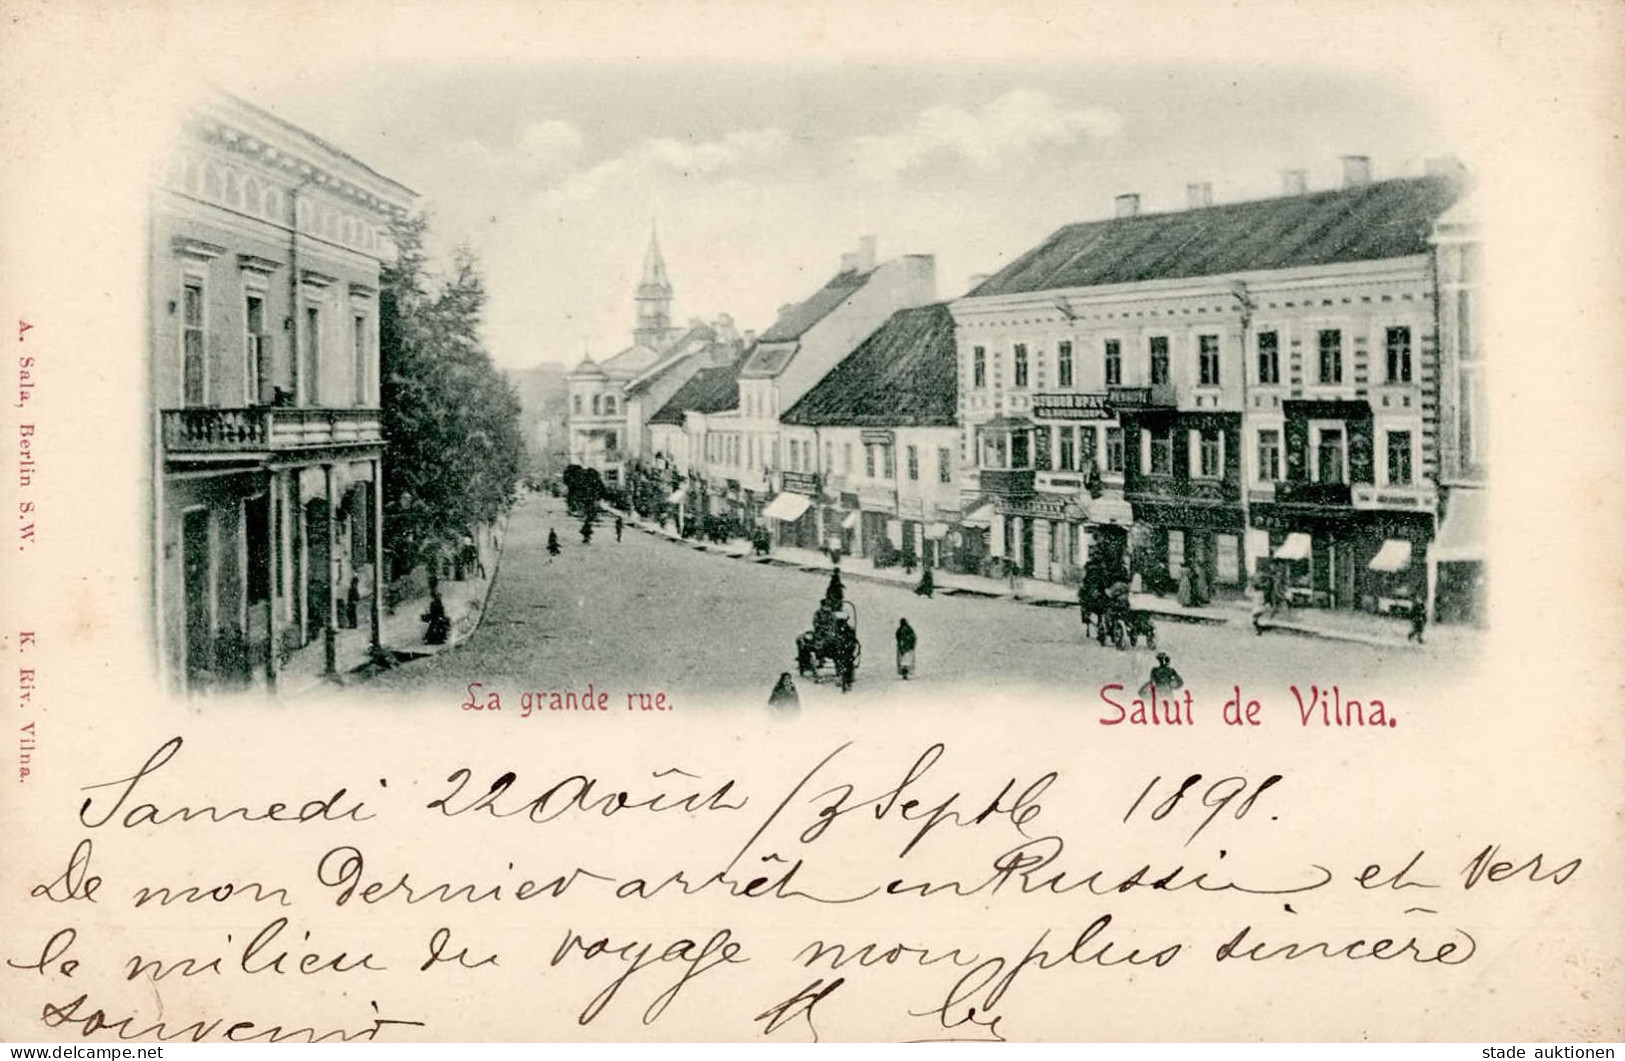 A. Sala, Berlin S.W. K. Riv. Vilna.
La grande rue.
Salut de Vilna.
Samedi 22 Août / 3 Septb 1898.
De mon dernier arrêt en Russie et vers
le milieu du voyage mon plus sincère
souvenir
stade auktionen
www.delcampe.net